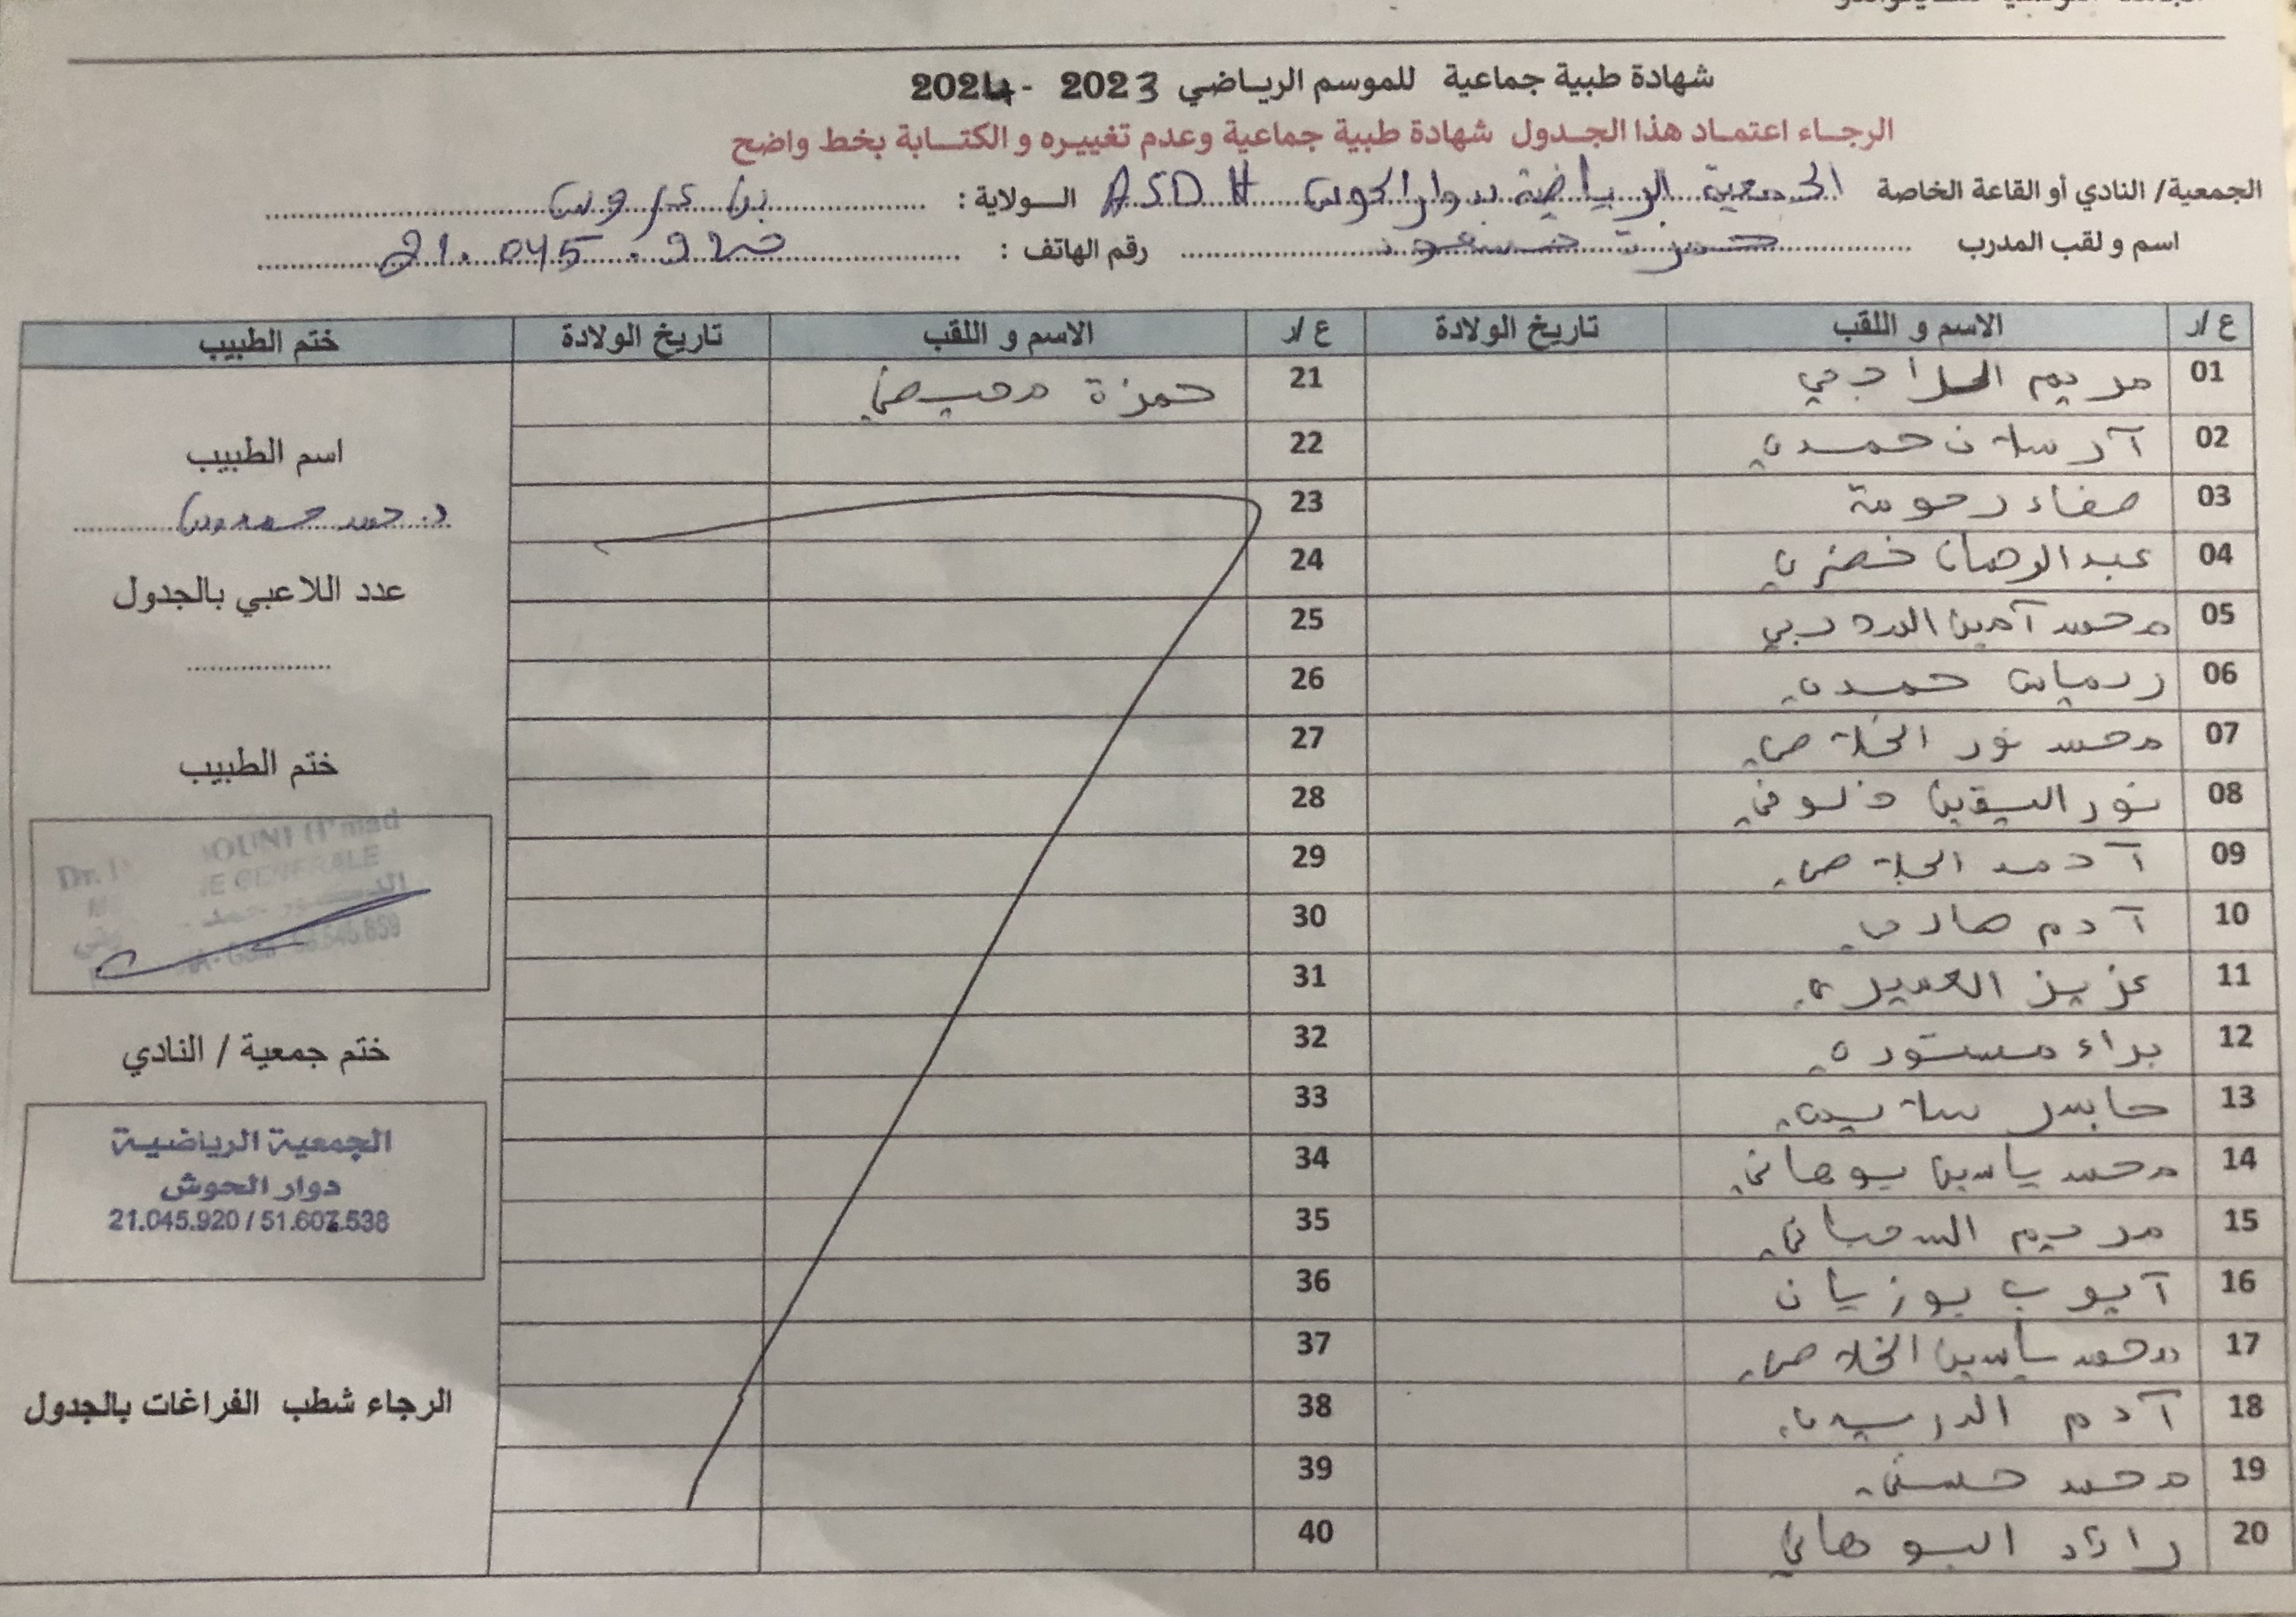 شهادة طبية جماعية للموسم الرياضي 2023 - 2024
الرجاء اعتماد هذا الجدول شهادة طبية جماعية وعدم تغييره و الكتابة بخط واضح
الجمعية/ النادي أو القاعة الخاصة الجمعية الرياضية بدوار الحوش ASDH الولاية : بن عروس
اسم و لقب المدرب حمزة رقم الهاتف : 21.045.920
ع /ر الاسم و اللقب تاريخ الولادة ع /ر الاسم و اللقب تاريخ الولادة ختم الطبيب
01 مريم 21 حمزة
02 آرسلان حمدي 22
اسم الطبيب
03 صفاء رحومة 23
د. حمد حمدوني
04 عبد الرحمان خضري 24
عدد اللاعبي بالجدول
05 محمد آمين 25
06 حمدي 26
07 محمد نور الخلاصي 27
ختم الطبيب
08 نور اليقين 28
09 الخلاصي 29
GENERALE
10 آدم 30
11 عزيز العميري 31
12 براء مستوري 32
ختم جمعية / النادي
13 33
الجمعية الرياضية
14 محمد ياسين بوهاني 34
دوار الحوش
15 مريم 35
21.045.920 / 51.607.538
16 آيوب بوزيان 36
17 محمد ياسين الخلاصي 37
18 آدم الدريدي 38
الرجاء شطب الفراغات بالجدول
19 محمد حسني 39
20 رائد البوهاني 40